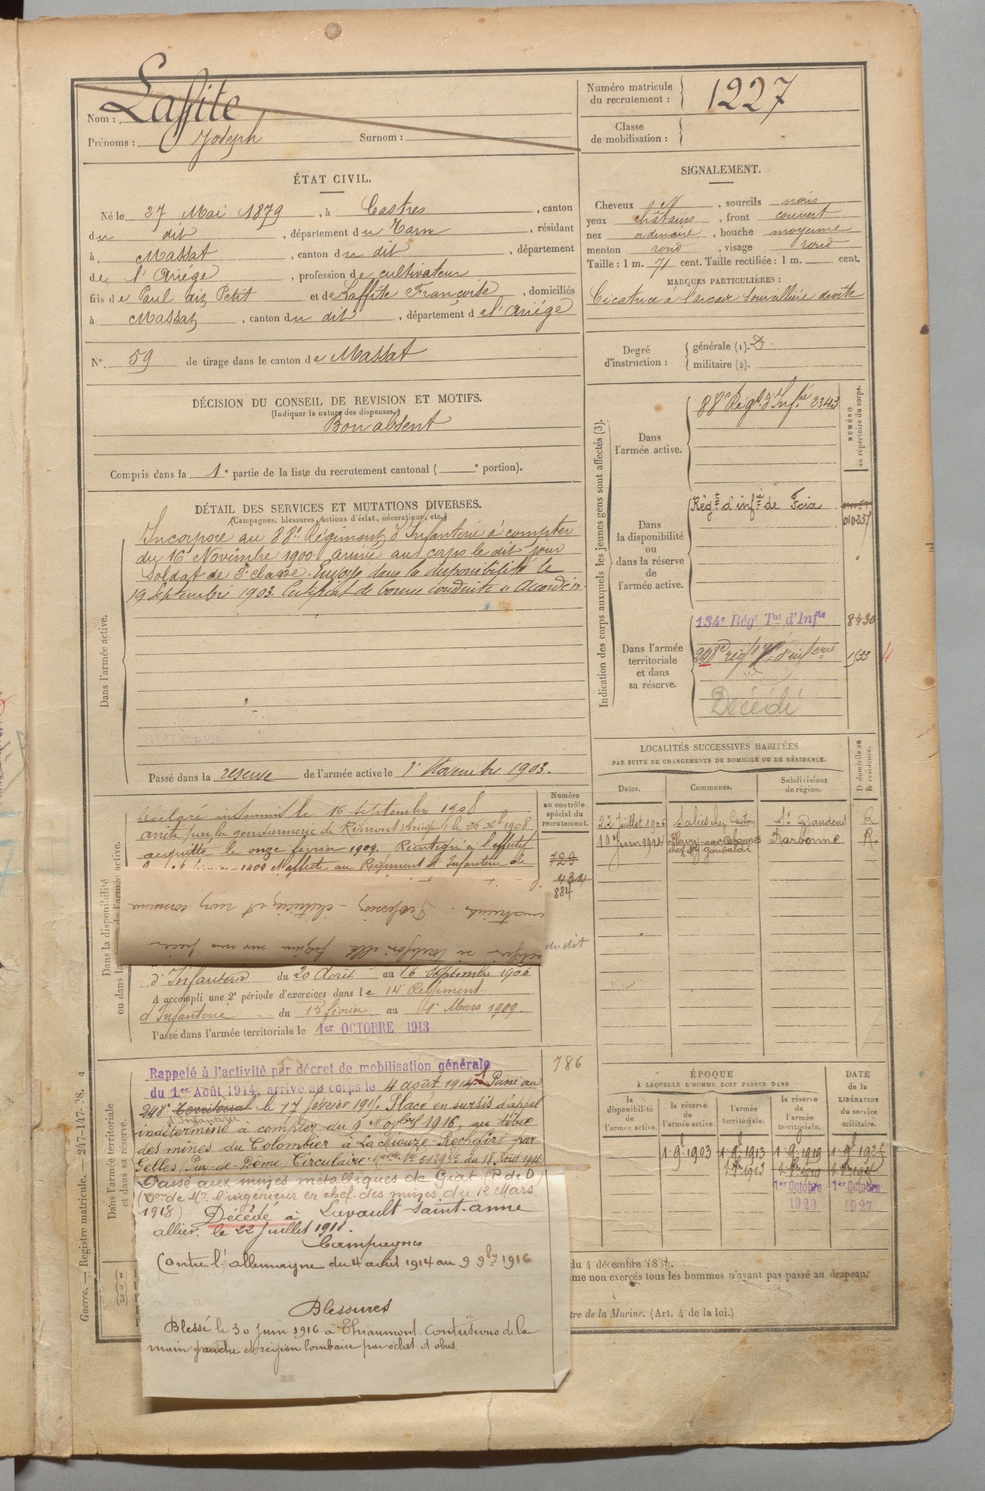 Nom : Laffite
Prénoms : Joseph Surnom :
Numéro matricule du recrutement : 1227
Classe de mobilisation :
ÉTAT CIVIL.
Né le 27 Mai 1879, à Castres, canton
du dit, département du Tarn, résidant
à Massat, canton du dit, département
de l'Ariége, profession de cultivateur
fils de Paul Petit et de Laffite Françoise, domiciliés
à Massat, canton du dit, département de l'Ariége
N° 59 de tirage dans le canton de Massat
DÉCISION DU CONSEIL DE REVISION ET MOTIFS.
(Indiquer la nature des dispenses)
Bon absent
Compris dans la 1e partie de la liste du recrutement cantonal ( e portion).
DÉTAIL DES SERVICES ET MUTATIONS DIVERSES.
(Campagnes, blessures, actions d'éclat, décorations, etc.)
Dans l'armée active.
Incorporé au 88e Régiment d'Infanterie à compter
du 16 Novembre 1900 arrivé au corps le dit jour
Soldat de 2e classe. Envoyé dans la disponibilité le
19 Septembre 1903. Certificat de bonne conduite "Accordé"
Passé dans la réserve de l'armée active le 1er Novembre 1903.
Dans la disponibilité
ou dans la
de l'armée active.
Numéro au contrôle spécial du recrutement.
Déclaré insoumis le 16 Septembre 1908
arrêté par la gendarmerie de Rimont
acquitté le onze février 1909. Réintégré à l'effectif
1909 Affecté au Régiment d'Infanterie de
729
434
884
du dit
d'Infanterie du 20 Août au 16 Septembre 1906
A accompli une 2e période d'exercices dans le 14 Régiment
d'Infanterie du 13 février au 1er Mars 1909.
Passé dans l'armée territoriale le 1er OCTOBRE 1913
786
Dans l'armée territoriale
et dans sa réserve.
Rappelé à l'activité par décret de mobilisation générale
du 1er Août 1914, arrivé au corps le 4 août 1914. Passé au
248e Territorial le 17 février 191 . Placé en sursis d'appel
indéterminé à compter du 9 1916, au titre
des mines du Colombier à La Miouze-Rochefort par
Gelles, Puy-de-Dôme, Circulaire du 18 Août
Passé aux mines métalliques de Giat (P. de D.)
de Mr l'ingénieur en chef des mines du 12 Mars
1918) Décédé à Lavault Saint-anne
allier. le 22 juillet 1918.
Campagnes
Contre l'allemagne du 4 août 1914 au 9 9bre 1916
Blessures
Blessé le 30 juin 1916 à Thiaumont. Contusions de la
main gauche et région lombaire par éclat d'obus.
Guerre. — Registre matricule. — 247-147-
SIGNALEMENT.
Cheveux N, sourcils noirs
yeux châtains, front couvert
nez ordinaire, bouche moyenne
menton rond, visage rond
Taille : 1 m. 71 cent. Taille rectifiée : 1 m. cent.
MARQUES PARTICULIÈRES :
Cicatrice à l'arcade sourcilière droite
Degré d'instruction : générale (1). 3
militaire (2).
Indication des corps auxquels les jeunes gens sont affectés (3).
NUMÉRO au répertoire du corps.
Dans l'armée active.
88e Régt d'Infie 2343
Dans la disponibilité ou dans la réserve de l'armée active.
Régt d'infie de Foix
010237
Dans l'armée territoriale et dans sa réserve.
134e Régt Tal d'Infie 8430
248e régt d'infanterie 1533
Décédé
LOCALITÉS SUCCESSIVES HABITÉES
PAR SUITE DE CHANGEMENTS DE DOMICILE OU DE RÉSIDENCE.
Dates. Communes. Subdivisions de région. D domicile ou R résidence.
22 Juillet 1906 Salies St Gaudens R
10 Juin 1914 Narbonne R.
ÉPOQUE
À LAQUELLE L'HOMME DOIT PASSER DANS
DATE de la LIBÉRATION du service militaire.
la disponibilité de l'armée active.
la réserve de l'armée active.
l'armée territoriale.
la réserve de l'armée territoriale.
1 9 1903 1 9 1913 1 9 1919 1 9 1925
1er Octobre 1920 1er Octobre 1927
du 4 décembre 18
me non exercés tous les hommes n'ayant pas passé au drapeau.
tre de la Marine. (Art. 4 de la loi.)